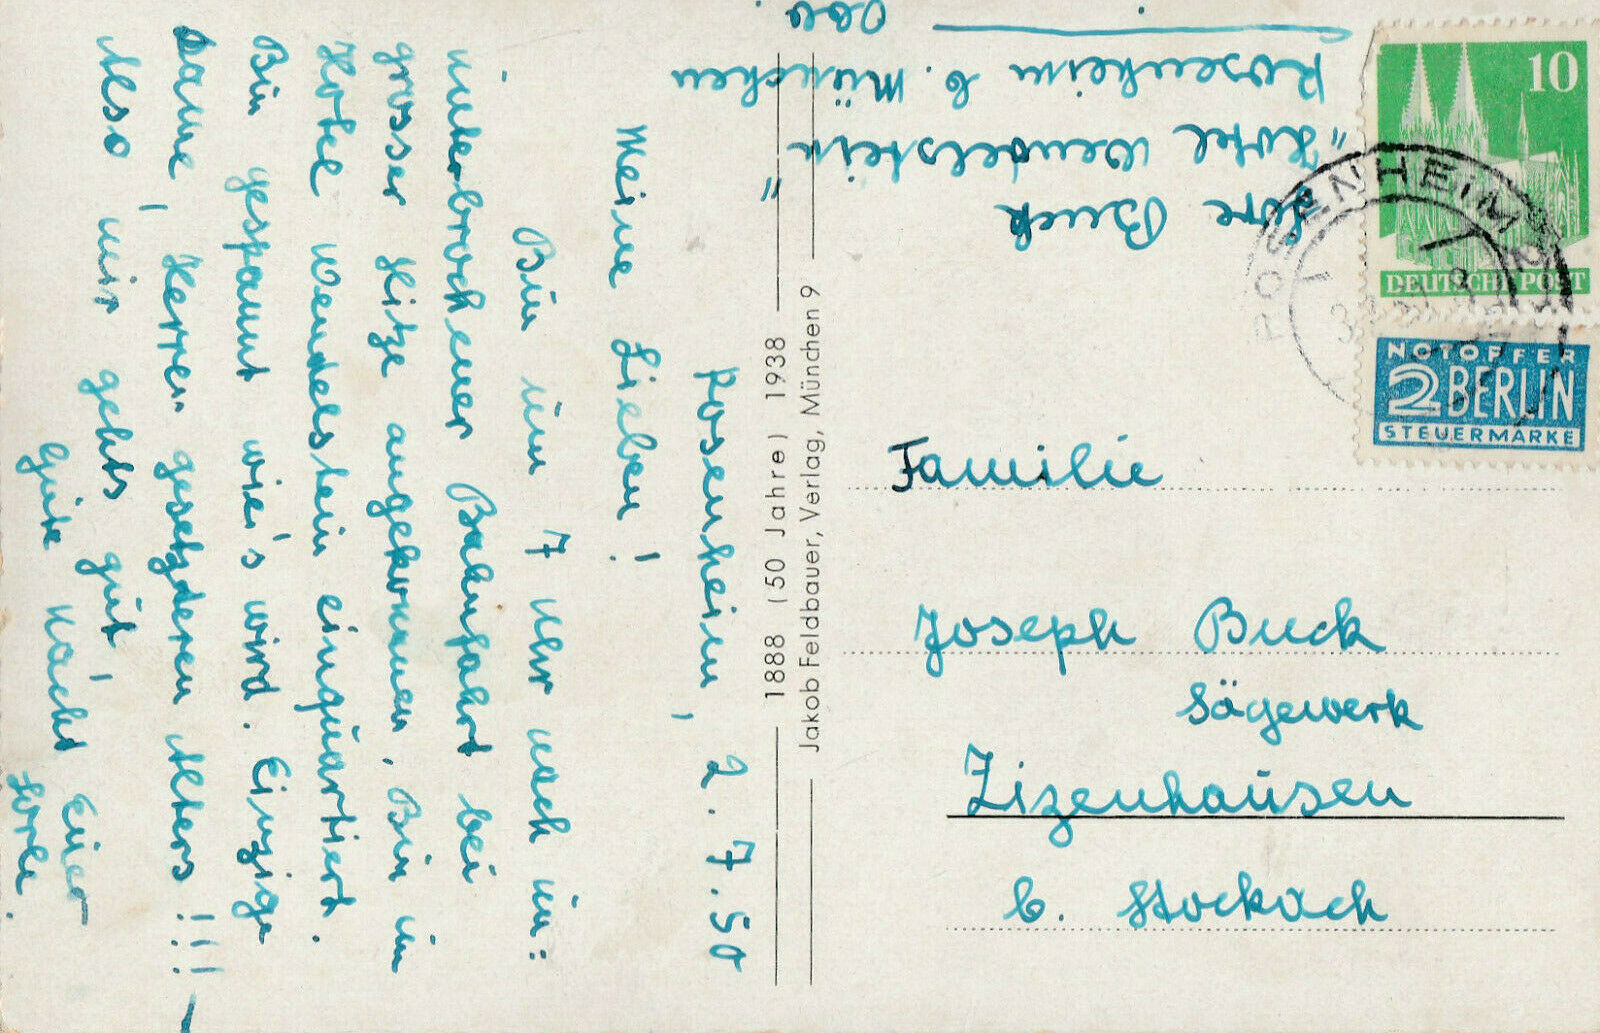 Rosenheim, 2.7.50
Meine Lieben!
Bin um 7 Uhr nach un-
unterbrochener Bahnfahrt bei
grosser Hitze angekommen, Bin im
Hotel Wendelstein einquartiert.
Bin gespannt wie's wird. Einzige
Dame, Herren gesetzteren Alters!!!
Also mir gehts gut
Gute Nacht Eure
Lore.
1888 (50 Jahre) 1938
Jakob Feldbauer, Verlag, München 9
Lore Buck
"Hotel Wendelstein"
Rosenheim b. München
Obb.
10
DEUTSCHE POST
ROSENHEIM 2
NOTOPFER
2 BERLIN
STEUERMARKE
Familie
Joseph Buck
Sägewerk
Zizenhausen
b. Stockach